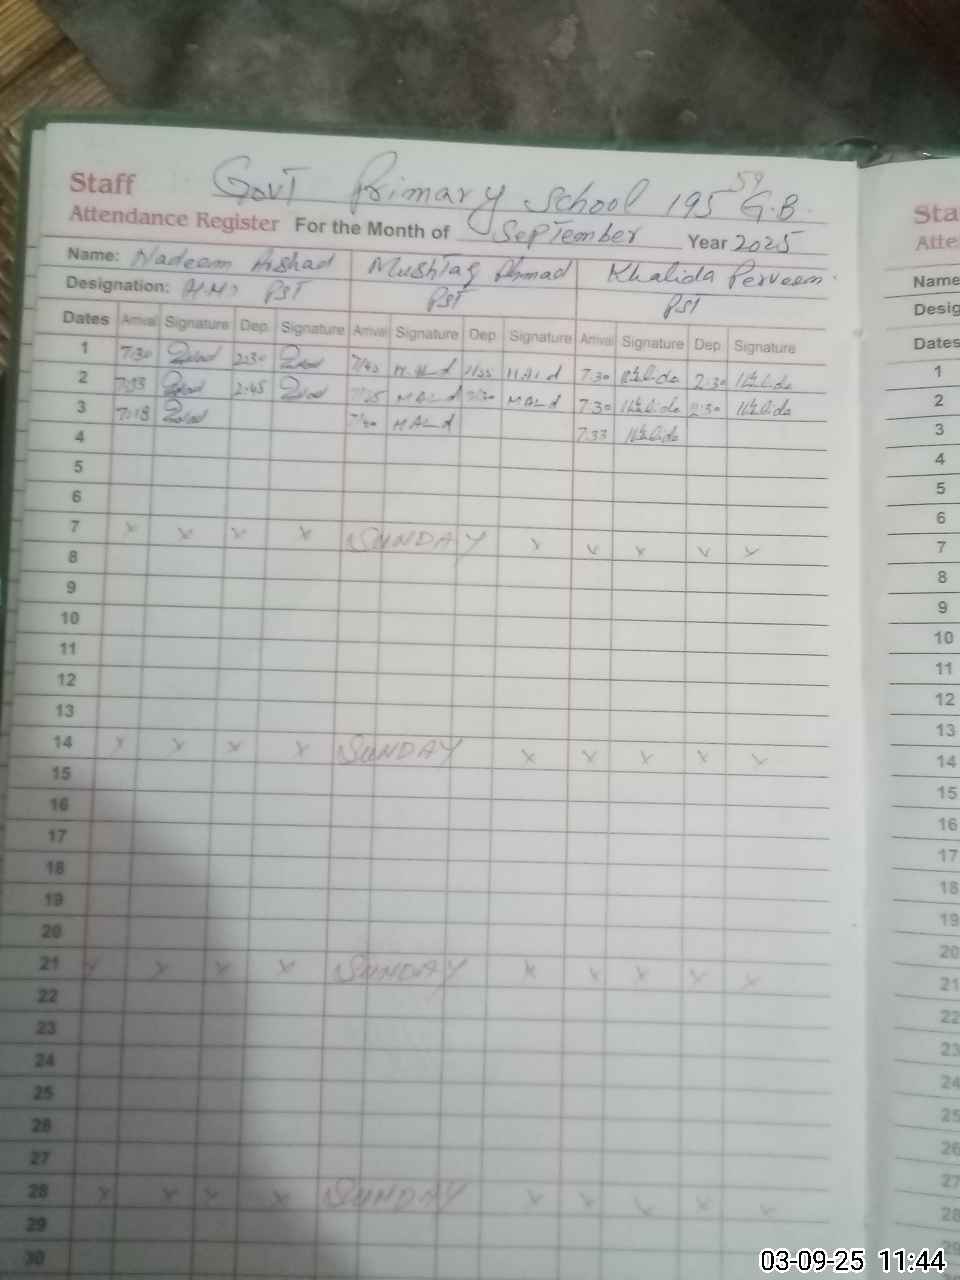 Staff
GovT Primary School 195 G.B
59
Attendance Register For the Month of September Year 2025
Name: Nadeem Arshad Mushtaq Ahmad Khalida Perveen
Designation: PST PST PST
Dates Arrival Signature Dep. Signature Arrival Signature Dep Signature Arrival Signature Dep. Signature
1 7:30 2:30 7/40 7:30 2:30
2 7:33 2:45 7/25 7:30 2:30
3 7:18 7/40 7:33
4
5
6
7 x x x x SUNDAY x x x x x
8
9
10
11
12
13
14 x x x x SUNDAY x x x x x
15
16
17
18
19
20
21 x x x x SUNDAY x x x x x
22
23
24
25
26
27
28 x x x x SUNDAY x x x x x
29
30
Sta
Atte
Name
Desig
Dates
1
2
3
4
5
6
7
8
9
10
11
12
13
14
15
16
17
18
19
20
21
22
23
24
25
26
27
28
29
03-09-25 11:44